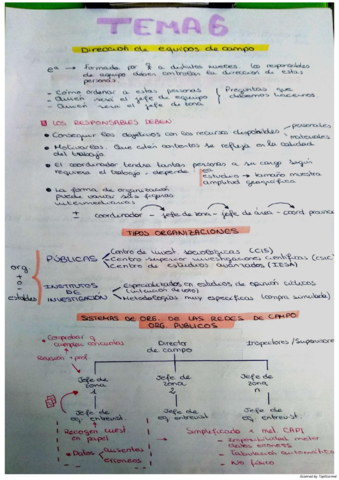 TEMA 6
Dirección de equipos de campo
eº → Formado por a distintos niveles. Los responsables
de equipo deben controlar la dirección de estas
personas.
- Cómo ordenar a estas personas
- Quién será el jefe de equipo
- Quién será el jefe de zona
Preguntas que
debemos hacernos.
LOS RESPONSABLES DEBEN
• Conseguir los objetivos con los recursos disponibles
personales
materiales
• Motivarlos. Que estén contentos se refleja en la calidad
del trabajo
• El coordinador tendrá tantas personas a su cargo según
requiera el trabajo - depende
estudio → tamaño muestra
amplitud geográfica
• La forma de organización
puede variar según figuras
intermediarias
± coordinador - jefe de zona - jefe de área - coord. provincia
TIPOS ORGANIZACIONES
org.
estatales
PÚBLICAS
Centro de invest sociológicas (CIS)
Centro superior investigaciones científicas (CSIC)
Centro de estudios avanzados (IESA)
INSTITUTOS
DE
INVESTIGACIÓN
Especializados en estudios de opinión públicos
(intención de voto)
Metodologías muy específicas (compra simulada)
SISTEMAS DE ORG. DE LAS REDES DE CAMPO
ORG. PÚBLICOS
• Comprobar y
Directo
de campo
Inspectores / Supervisores
Jefe de
zona
1
Jefe de
zona
2
Jefe de
zona
n
Jefe de
eq. entrevist.
Jefe de
eq. entrevist.
Jefe de
eq. entrevist.
Recogen cuest
en papel
• Datos
ausentes
erróneos
Simplificado x met. CAPI
- Imposibilidad meter
datos erróneos
- Tabulación automática
- No físico
Scanned by TapScanner